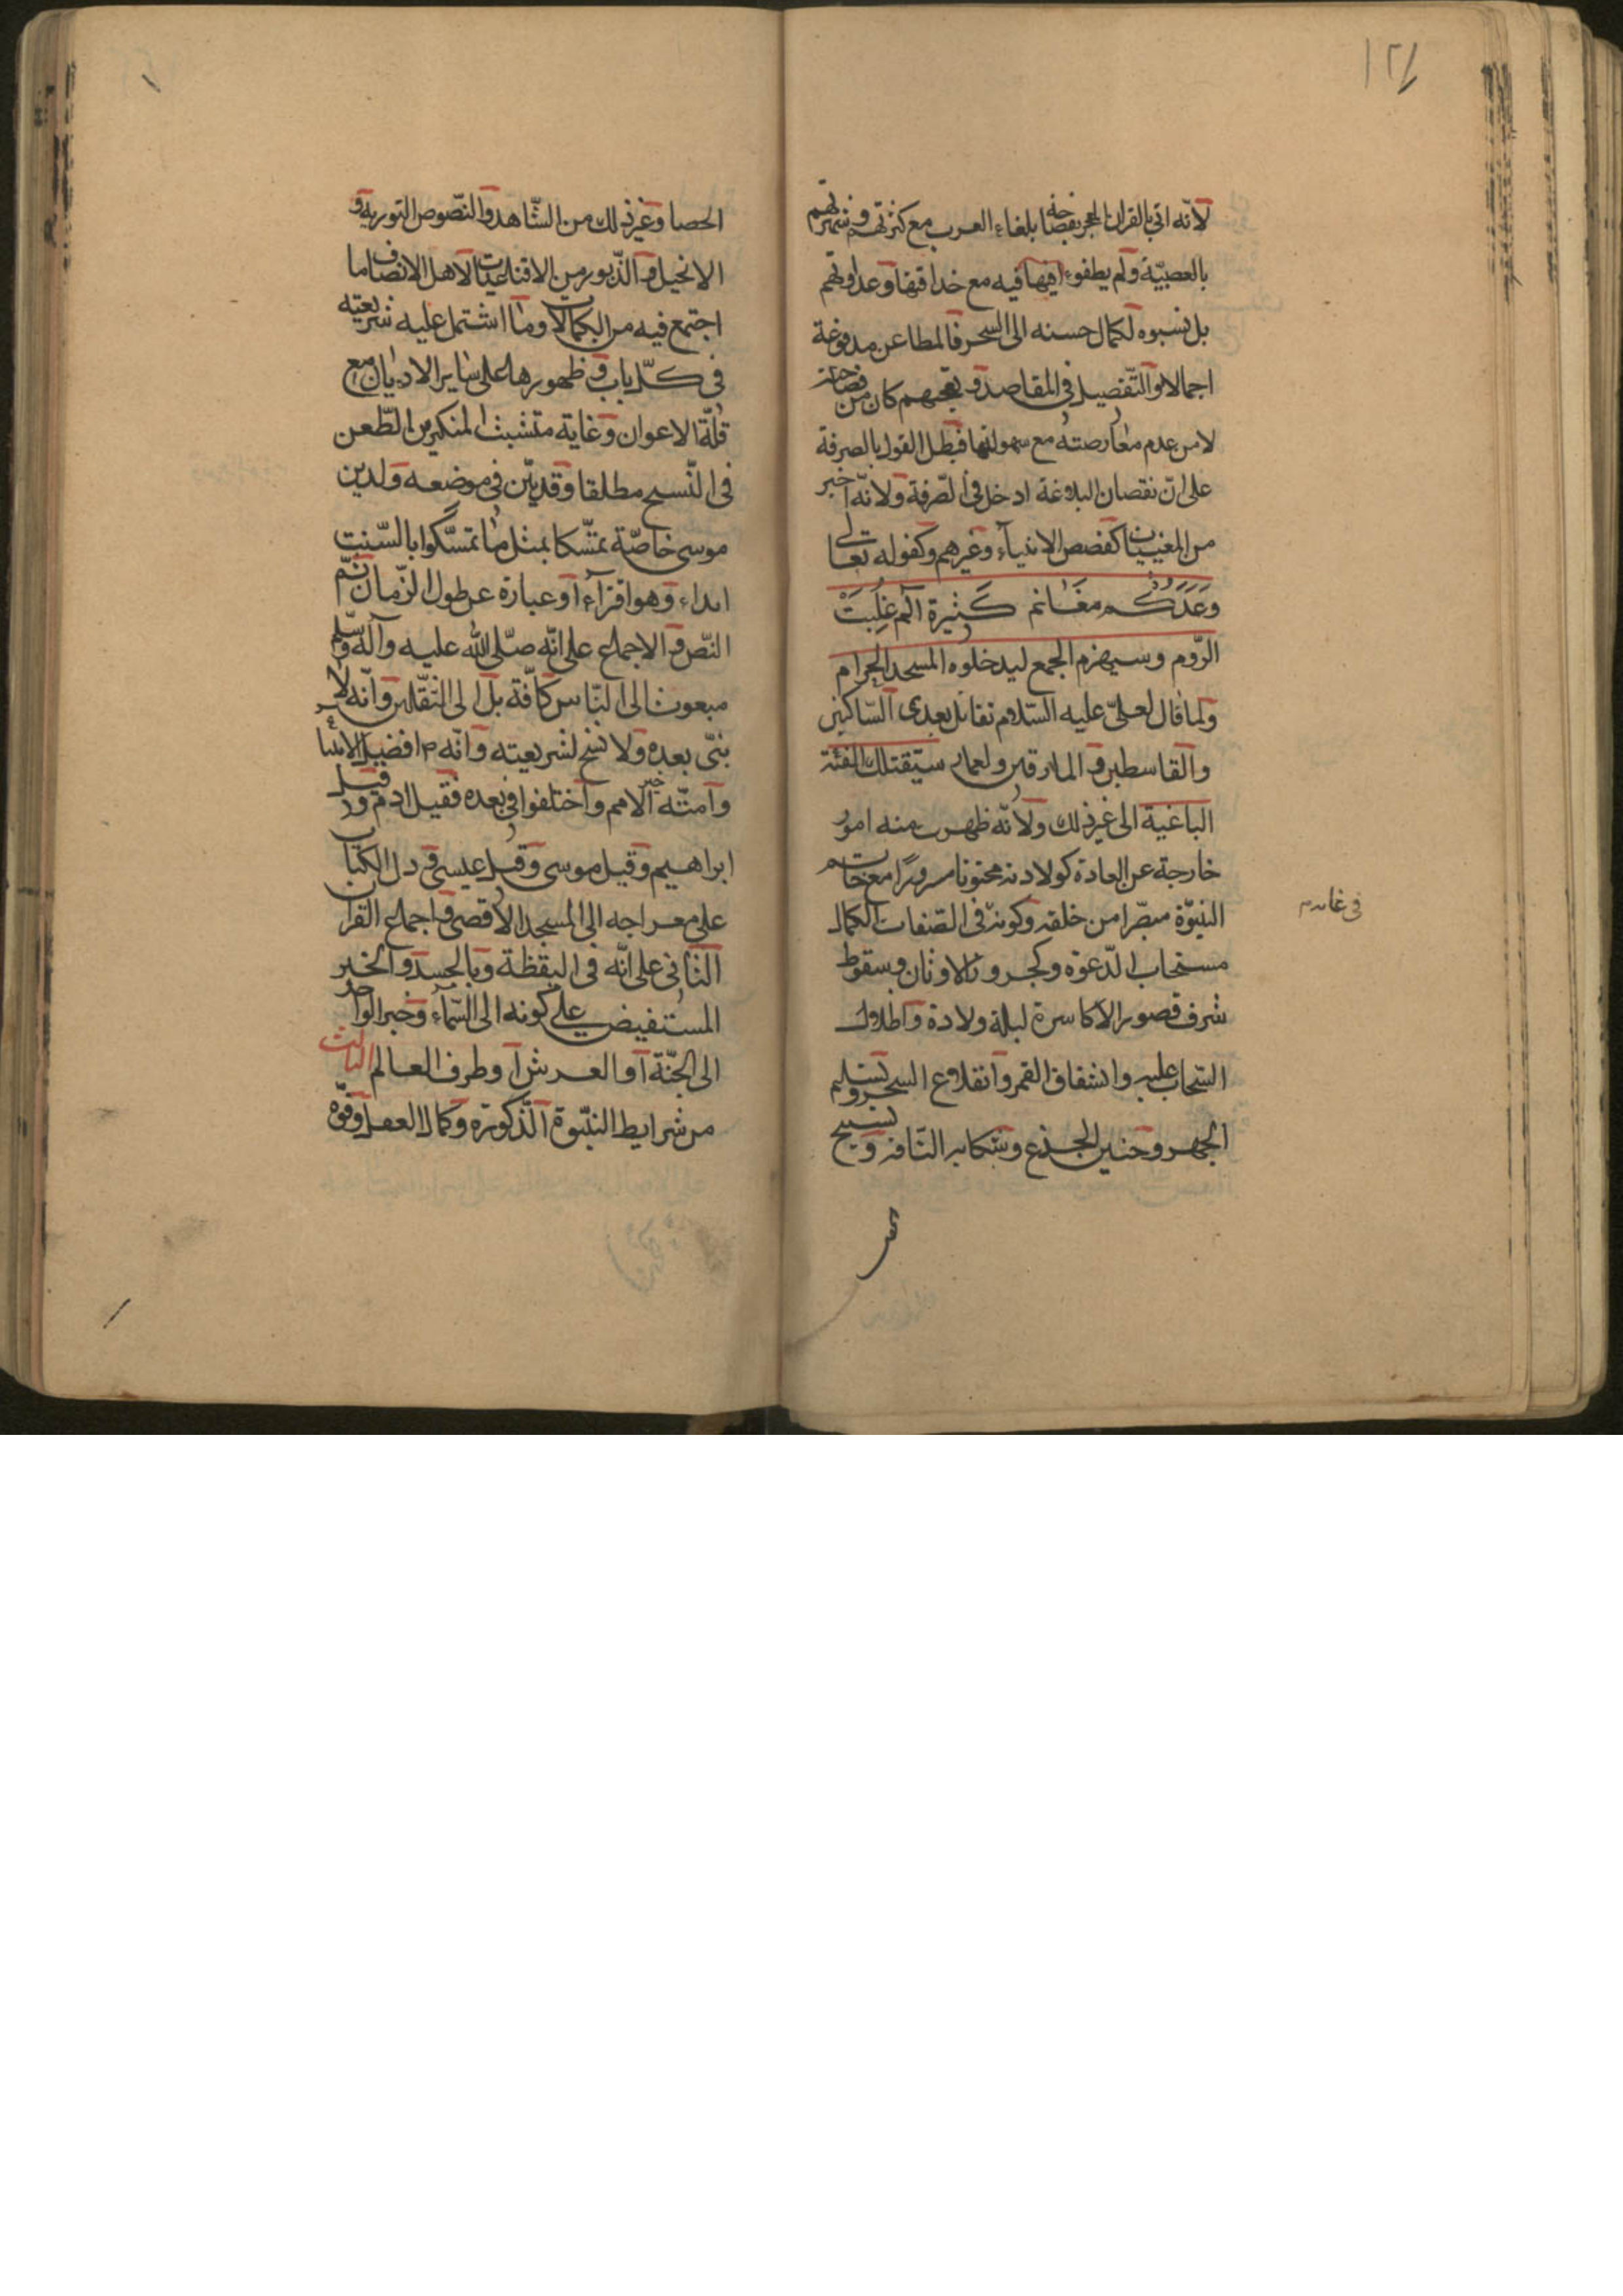 ١٢١
لانّه اتى بالقران المعجز بفصاحته بلغاء العرب مع كثرتهم وشهرتهم
بالعصبيّة ولم يطفوء فيه مع حذاقتها وعداوتهم
بل نسبوه لكمال حسنه الى السحر فالمطاعن مدفوعة
اجمالا والتّفصيل فى المقاصد وتعجبهم كان من فصاحته
لا من عدم معارضته مع سهولتها فبطل القول بالصرفة
على انّ نقصان البلاغة ادخل فى الصّرفة ولانّه اخبر
من المغيبات كقصص الانبياء وغيرهم وكقوله تعالى
وَعَدَكُم مغَانم كَثيرة الم غلِبَتْ
الرّوم وسيهزم الجمع ليدخلوه المسجد الحرام
ولما قال لعلىّ عليه السّلام تقاتل بعدى النّاكثين
والقاسطين والمارقين ولعمار ستقتلك الفئة
الباغية الى غير ذلك ولانّه ظهرت منه امور
خارجة عن العادة كولادته مختونا مسرورًا مع خاتم
النبوّة مبصّرا من خلقه وكونه فى الصّفات الكمال
مستجاب الدّعوة وكجرور الاوثان وسقوط
شرف قصور الاكاسرة ليلة ولادة واظلال
السّحاب عليه وانشقاق القمر وانقلاع الشجر وتسليم
الحجر وحنين الجذع وشكاية النّاقة وتسبيح
فى غانم
الحصا وغير ذلك من الشّاهد والنّصوص التورية و
الانجيل والزّبور من الاقناعيات لاهل الانصاف اما
اجتمع فيه من الكمالات وما اشتمل عليه شريعته
فى كلّ باب و ظهورها على ساير الاديان مع
قلّة الاعوان وغاية متشبث المنكرين الطّعن
فى النّسخ مطلقا وقد بيّن فى موضعه ولدين
موسى خاصّة تمسّكا بمثل ما تمسّكوا بالسّبت
ابداء وهو افتراء او عبارة عن طول الزّمان ثم
النّص والاجماع على انّه صلّى الله عليه وآله وسلم
مبعوث الى النّاس كافّة بل الى الثّقلين وانّه لا
نبىّ بعده ولا نسخ لشريعته وانّه م افضل الانبياء
وامّته خير الامم واختلفوا فى بعده فقيل ادم وقيل
ابراهيم وقيل موسى وقيل عيسى ودل الكتاب
على معراجه الى المسجد الاقصى واجماع القران
الثّانى على انّه فى اليقظة وبالجسد والخبر
المستفيض على كونه الى السّماء وخبر الواحد
الى الجنّة او العرش او طرف العالم الثالث
من شرايط النبّوة الذكورة وكمال العقل وقوّة